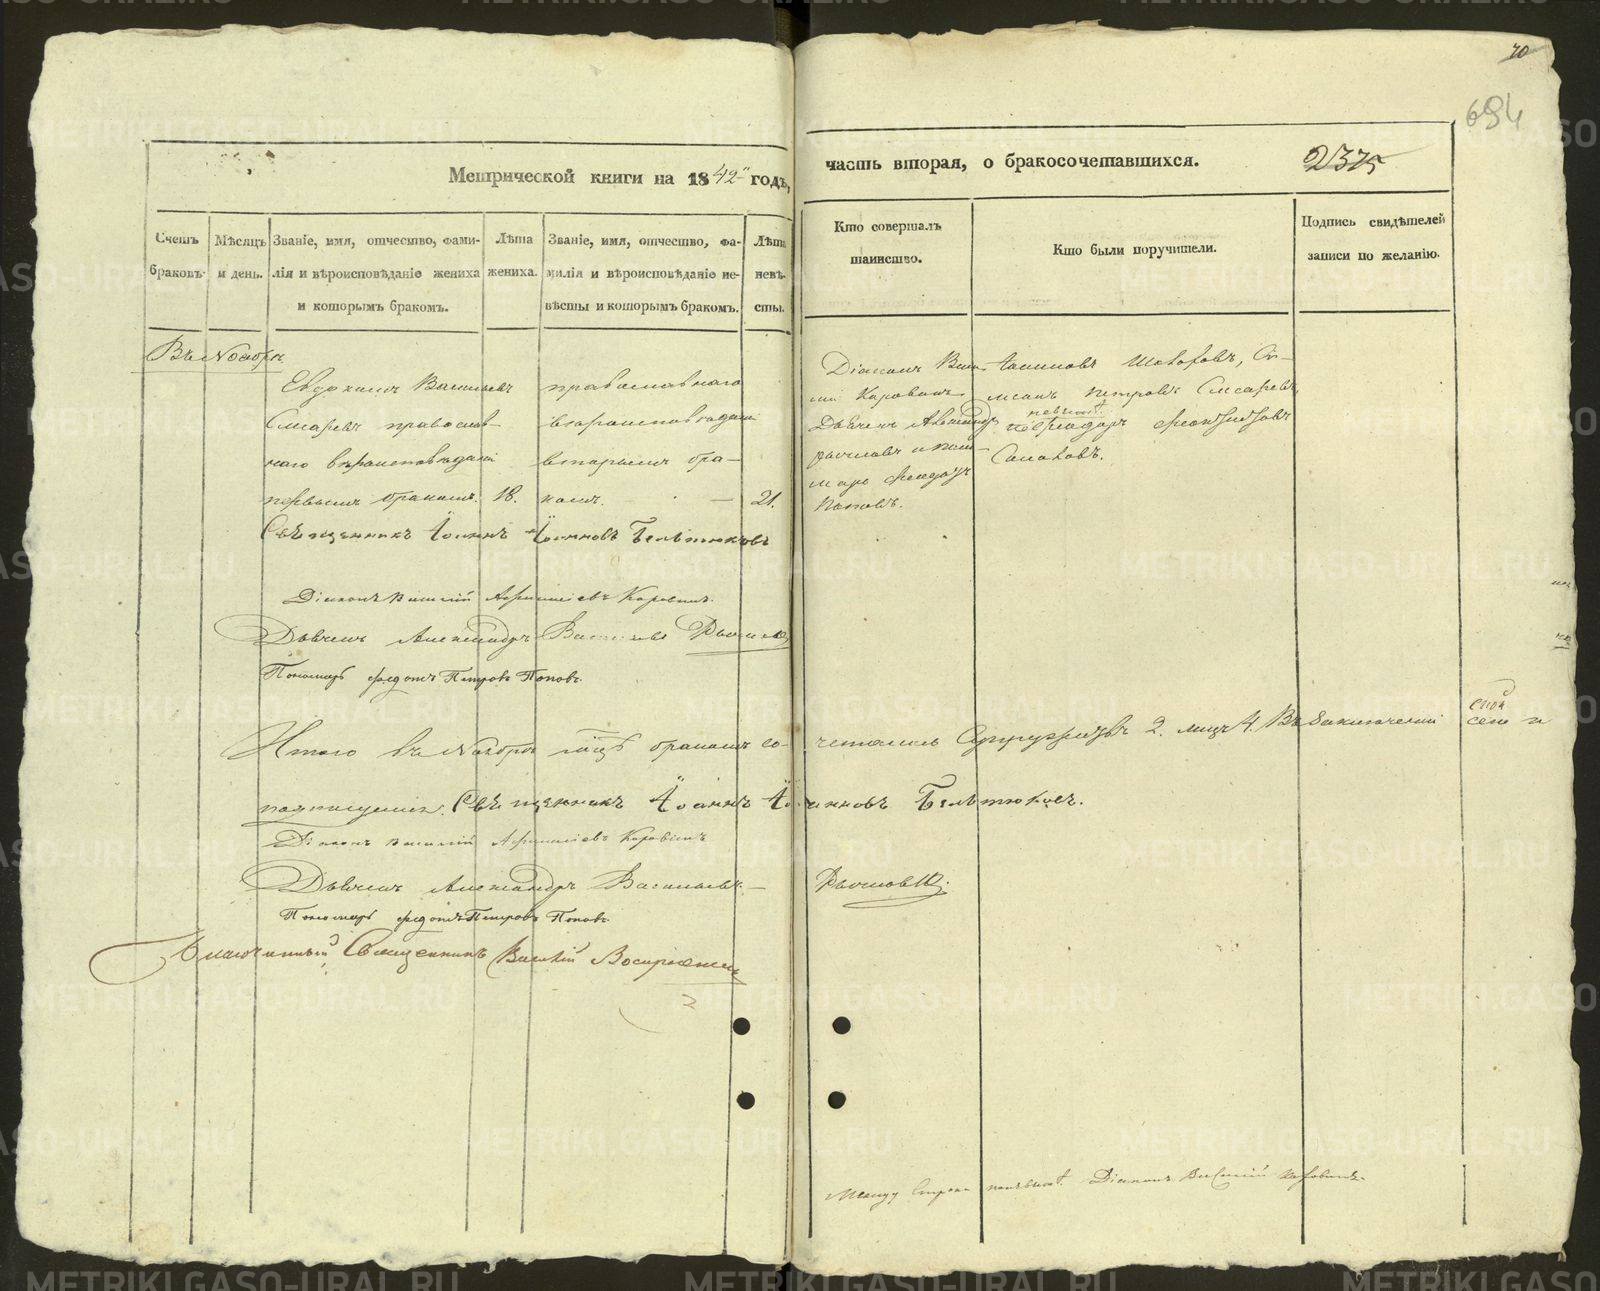 70
694
Метрической книги на 1842 годъ,
часть вторая, о бракосочетавшихся.
2375
Счетъ браковъ.
Мѣсяцъ и день.
Званіе, имя, отчество, фами-
лія и вѣроисповѣданіе жениха
и которымъ бракомъ.
Лѣта
жениха.
Званіе, имя, отчество, фа-
милія и вѣроисповѣданіе не-
вѣсты и которымъ бракомъ.
Лѣта
невѣ-
сты.
Кто совершалъ
таинство.
Кто были поручители.
Подпись свидѣтелей
записи по желанію.
Въ Ноябрѣ
Евдокимъ Васильевъ
Слесаревъ православ-
наго вѣроисповѣданія
первымъ бракомъ.
18.
православнаго
вѣроисповѣданія
вторымъ бра-
комъ.
21.
Діаконъ Васи-
лій Коровинъ
Дьячекъ Александръ
Рычковъ и поно-
марь Федотъ
Поповъ.
Петровъ Слесаревъ,
Священникъ Іоаннъ Іоанновъ Бельтюковъ
Діаконъ Василій Афанасіевъ Коровинъ.
Дьячекъ Александръ Васильевъ Рычковъ
Пономарь Федотъ Петровъ Поповъ.
Итого въ Ноябрѣ мцѣ бракомъ со-
четались Супружествъ 2. лицъ 4. Въ Заключеніи
сей
подписуемся. Священникъ Іоаннъ Іоанновъ Бельтюковъ.
Діаконъ Василій Афанасіевъ Коровинъ
Дьячекъ Александръ Васильевъ
Рычковъ.
Пономарь Федотъ Петровъ Поповъ.
Благочинный Священникъ Василій
Между строкъ Діаконъ Василій Коровинъ.
METRIKI.GASO-URAL.RU